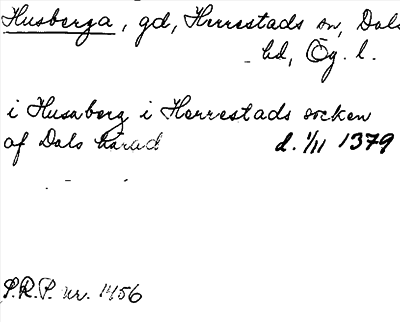 Husberga, gd, Herrestads sn, Dals
hd, Ög. l.
i Husaberg i Herrestads socken
af Dals härad d. 1/11 1379
P.R.P. nr. 1456